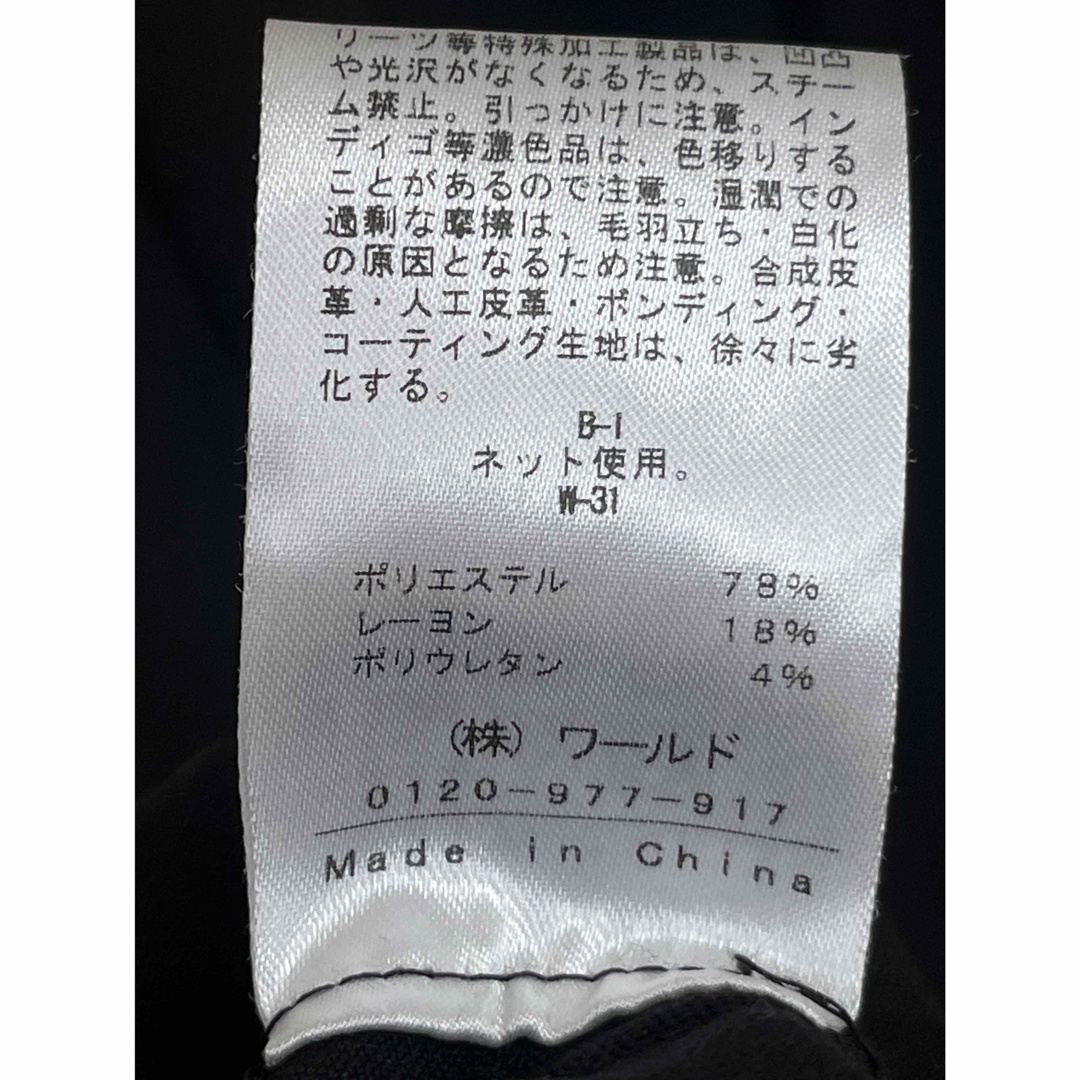 リーツ等特殊加工製品は、凹凸
や光沢がなくなるため、スチー
ム禁止。引っかけに注意。イン
ディゴ等濃色品は、色移りする
ことがあるので注意。湿潤での
過剰な摩擦は、毛羽立ち・白化
の原因となるため注意。合成皮
革・人工皮革・ボンディング・
コーティング生地は、徐々に劣
化する。
B-1
ネット使用。
W-31
ポリエステル 78%
レーヨン 18%
ポリウレタン 4%
(株) ワールド
0120-977-917
Made in China